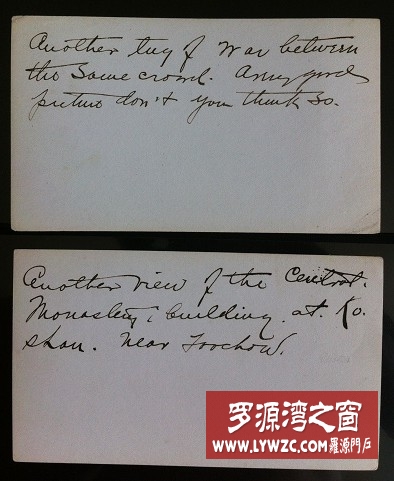 Another tug of war between
the same crowd. A very good
picture don't you think so.
Another view of the Central.
Monastery building. at. Ko.
shan. near Foochow.
罗源湾之窗
WWW.LYWZC.COM 羅源門戶